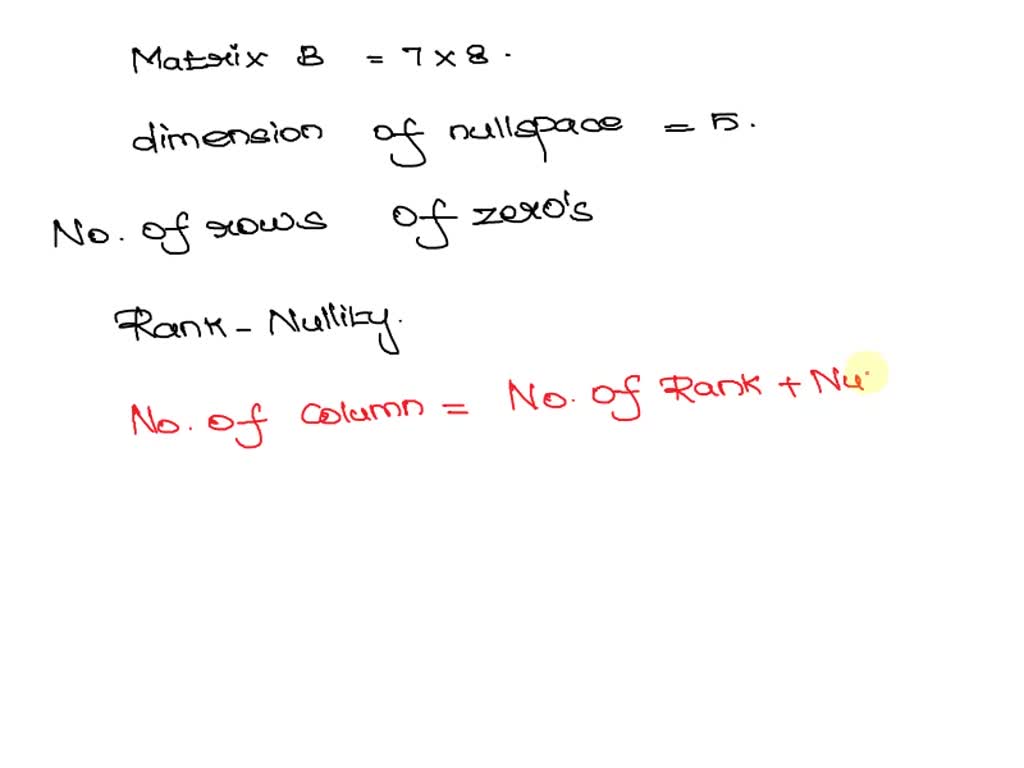 Matrix B = 7 × 8.
dimension of nullspace = 5.
No. of rows of zero's
Rank - Nullity.
No. of column = No. of Rank + Nu